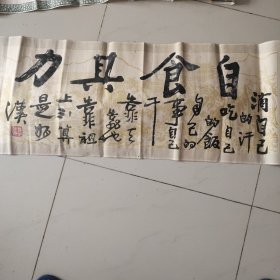 自食其力
滴自己
的汗
吃自己
的饭
自己的
事自己
干
靠天
靠祖
上不算
是好
汉